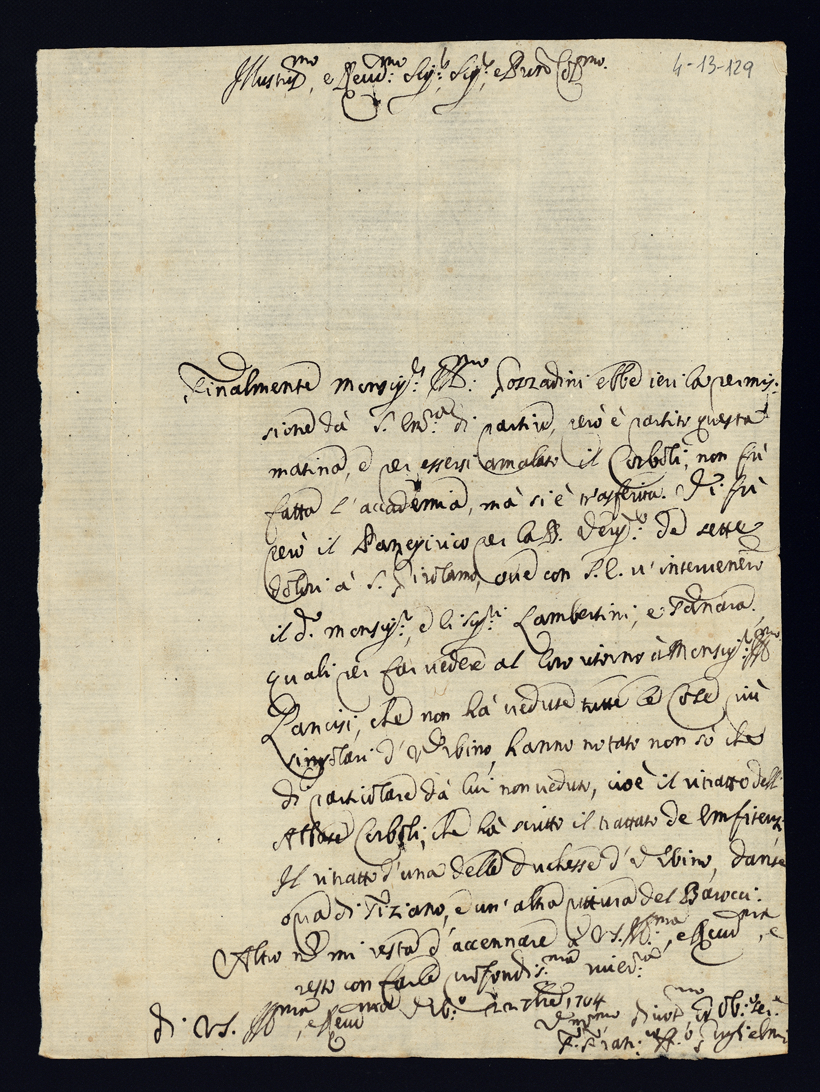 4-13-129
Illustr.mo, e Rev.mo Sig.r, Sig.r, e Pron Col.mo
Finalmente Monsig.r Ill.mo Pozzadini ebbe ieri la permis-
sione dà S. Em.za di partire, però è partito questa
matina, e per essersi amalato il Corboli, non fù
fatta l'accademia, mà si è trasferita. Vi fù
però il Panegirico per la B. Verg.e de sette
dolori à S. Girolamo, ove con S. E. v'intervenero
il d.o Monsig.r, e li Sig.ri Lambertini, e Tanara.
quali per far vedere al loro ritorno à Monsig.r Ill.mo
Lancisi, che non hà vedute tutte le cose più
singolari d'Urbino, hanno notato non sò che
di particolare dà lui non veduto, cioè il ritratto dell'
Abbate Corboli, che hà scritto il trattato de Emfiteusi
Il ritratto d'una delle Duchesse d'Urbino,
opra di Tiziano, e un'altra pittura del Barocci.
Altro non mi resta d'accennare à V.S. Ill.ma, e Rev.ma, e
resto con farle profondis.ma river.za
di V.S. Ill.ma, e Rev.ma Urb.o 1704